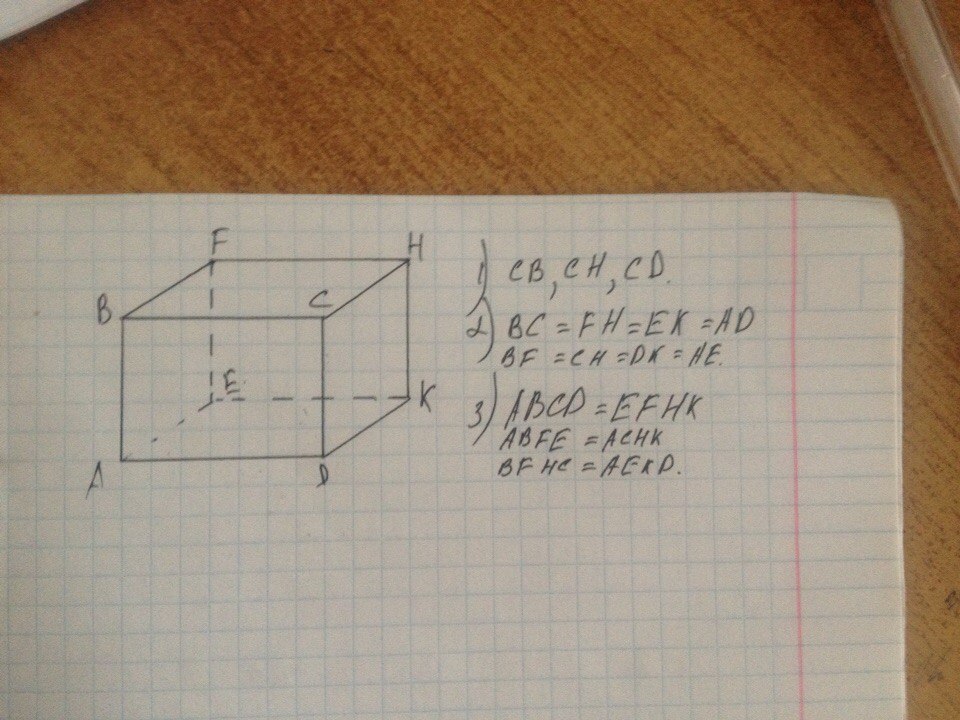 F
H
B
C
E
K
A
D
1) CB, CH, CD.
2) BC = FH = EK = AD
BF = CH = DK = AE.
3) ABCD = EFHK
ABFE = ACHK
BFHC = AEKD.